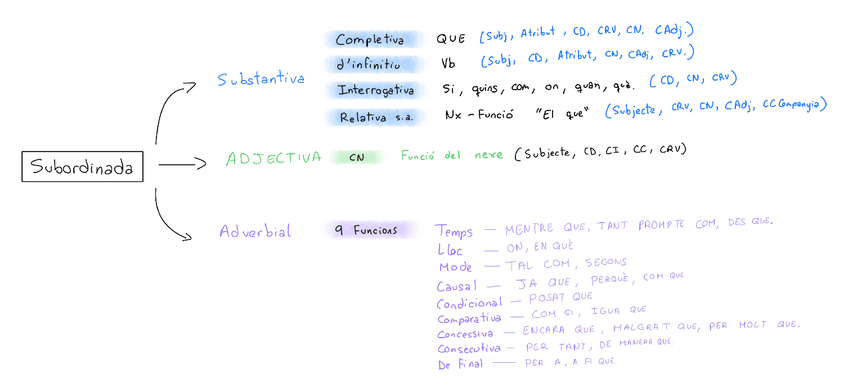 Subordinada
Substantiva
Completiva QUE (Subj, Atribut, CD, CRV, CN, CAdj.)
d'infinitiu Vb (Subj, CD, Atribut, CN, CAdj, CRV.)
Interrogativa Si, quins, com, on, quan, què. (CD, CN, CRV)
Relativa s.a. Nx - Funció "El que" (Subjecte, CRV, CN, CAdj, CCCompanyia)
ADJECTIVA CN Funció del nexe (Subjecte, CD, CI, CC, CRV)
Adverbial 9 Funcions
Temps — MENTRE QUE, TANT PROMPTE COM, DES QUE.
Lloc — ON, EN QUÈ
Mode — TAL COM, SEGONS
Causal — JA QUE, PERQUÈ, COM QUE
Condicional — POSAT QUE
Comparativa — COM SI, IGUA QUE
Concessiva — ENCARA QUE, MALGRAT QUE, PER MOLT QUE.
Consecutiva — PER TANT, DE MANERA QUE.
De final — PER A, A FI QUE